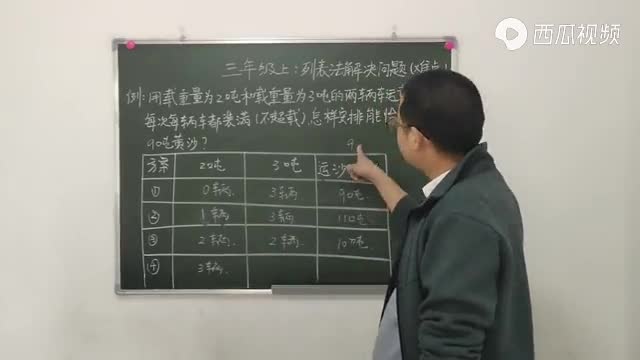 西瓜视频
三年级上:列表法解决问题(难点)
例:用载重量为20吨和载重量为30吨的两辆车运
每次每辆车都装满(不超载),怎样安排能恰
90吨黄沙?
9
方案 20吨 30吨 运沙
① 0辆 3辆 90吨.
② 1辆 3辆 110吨.
③ 2辆. 2辆. 100吨.
④ 3辆.